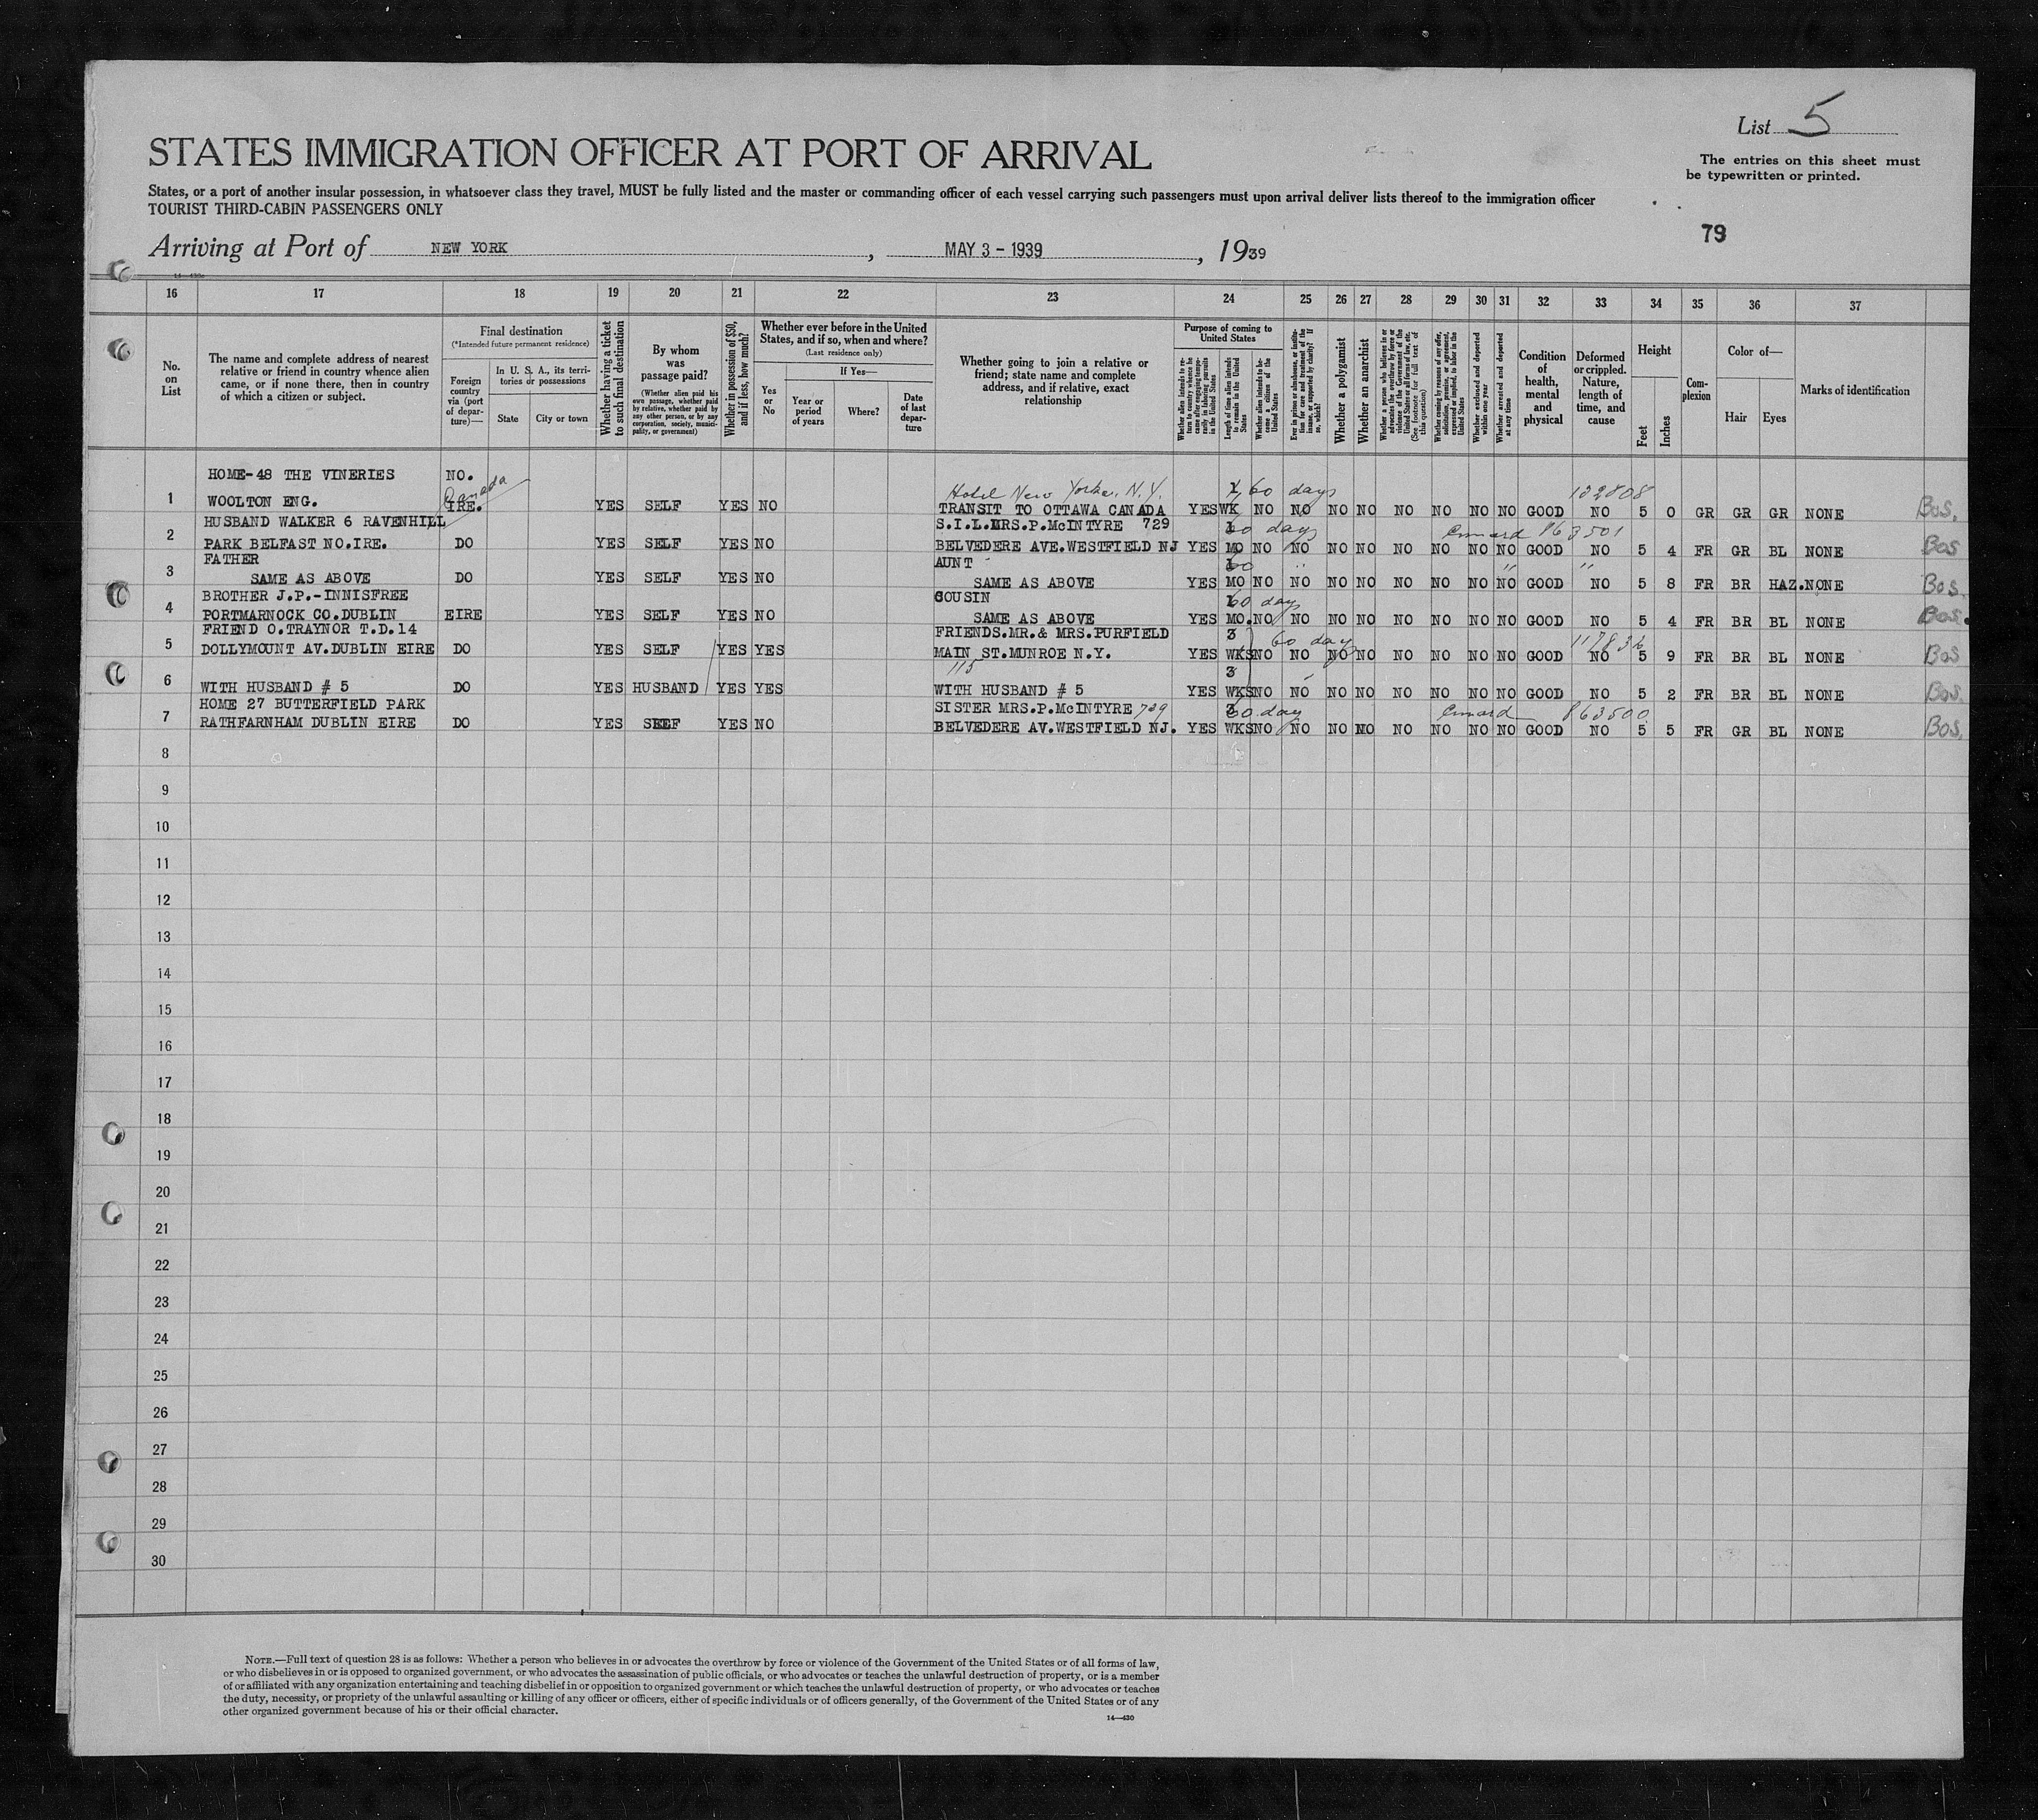 List 5
STATES IMMIGRATION OFFICER AT PORT OF ARRIVAL
The entries on this sheet must
be typewritten or printed.
States, or a port of another insular possession, in whatsoever class they travel, MUST be fully listed and the master or commanding officer of each vessel carrying such passengers must upon arrival deliver lists thereof to the immigration officer
TOURIST THIRD-CABIN PASSENGERS ONLY
79
Arriving at Port of NEW YORK , MAY 3 - 1939 , 1939
16 17 18 19 20 21 22 23 24 25 26 27 28 29 30 31 32 33 34 35 36 37
No. on List
The name and complete address of nearest relative or friend in country whence alien came, or if none there, then in country of which a citizen or subject.
Final destination
(*Intended future permanent residence)
Foreign country via (port of departure)—
In U. S. A., its territories or possessions
State
City or town
Whether having a ticket to such final destination
By whom was passage paid?
(Whether alien paid his own passage, whether paid by relative, whether paid by any other person, or by any corporation, society, municipality, or government)
Whether in possession of $50, and if less, how much?
Whether ever before in the United States, and if so, when and where?
(Last residence only)
Yes or No
If Yes—
Year or period of years
Where?
Date of last departure
Whether going to join a relative or friend; state name and complete address, and if relative, exact relationship
Purpose of coming to United States
Whether alien intends to return to country whence he came after engaging temporarily in laboring pursuits in the United States
Length of time alien intends to remain in the United States
Whether alien intends to become a citizen of the United States
Ever in prison or almshouse, or institution for care and treatment of the insane, or supported by charity? If so, which?
Whether a polygamist
Whether an anarchist
Whether a person who believes in or advocates the overthrow by force or violence of the Government of the United States or all forms of law, etc. (See footnote for full text of this question)
Whether coming by reasons of any offer, solicitation, promise, or agreement, expressed or implied, to labor in the United States
Whether excluded and deported within one year
Whether arrested and deported at any time
Condition of health, mental and physical
Deformed or crippled. Nature, length of time, and cause
Height
Feet
Inches
Complexion
Color of—
Hair
Eyes
Marks of identification
HOME-48 THE VINERIES NO. Canada Hotel New Yorker, N.Y. 1 60 days 132808
1 WOOLTON ENG. IRE. YES SELF YES NO TRANSIT TO OTTAWA CANADA YES WK NO NO NO NO NO NO NO NO GOOD NO 5 0 GR GR GR NONE Bos.
HUSBAND WALKER 6 RAVENHILL S.I.L.MRS.P.McINTYRE 729 1 60 days Cunard 863501
2 PARK BELFAST NO.IRE. DO YES SELF YES NO BELVEDERE AVE.WESTFIELD NJ YES MO NO NO NO NO NO NO NO NO GOOD NO 5 4 FR GR BL NONE Bos
FATHER AUNT 1 60 " " "
3 SAME AS ABOVE DO YES SELF YES NO SAME AS ABOVE YES MO NO NO NO NO NO NO NO NO GOOD NO 5 8 FR BR HAZ. NONE Bos.
BROTHER J.P.-INNISFREE COUSIN 1 60 days
4 PORTMARNOCK CO.DUBLIN EIRE YES SELF YES NO SAME AS ABOVE YES MO. NO NO NO NO NO NO NO NO GOOD NO 5 4 FR BR BL NONE Bos.
FRIEND O.TRAYNOR T.D.14 FRIENDS.MR.& MRS.PURFIELD 3 60 days 117836
5 DOLLYMOUNT AV.DUBLIN EIRE DO YES SELF YES YES MAIN ST.MUNROE N.Y. YES WKS NO NO NO NO NO NO NO NO GOOD NO 5 9 FR BR BL NONE Bos
115 3
6 WITH HUSBAND # 5 DO YES HUSBAND YES YES WITH HUSBAND # 5 YES WKS NO NO NO NO NO NO NO NO GOOD NO 5 2 FR BR BL NONE Bos.
HOME 27 BUTTERFIELD PARK SISTER MRS.P.McINTYRE 729 3 60 day Cunard 863500
7 RATHFARNHAM DUBLIN EIRE DO YES SELF YES NO BELVEDERE AV.WESTFIELD NJ. YES WKS NO NO NO NO NO NO NO NO GOOD NO 5 5 FR GR BL NONE Bos.
8
9
10
11
12
13
14
15
16
17
18
19
20
21
22
23
24
25
26
27
28
29
30
NOTE.—Full text of question 28 is as follows: Whether a person who believes in or advocates the overthrow by force or violence of the Government of the United States or of all forms of law,
or who disbelieves in or is opposed to organized government, or who advocates the assassination of public officials, or who advocates or teaches the unlawful destruction of property, or is a member
of or affiliated with any organization entertaining and teaching disbelief in or opposition to organized government or which teaches the unlawful destruction of property, or who advocates or teaches
the duty, necessity, or propriety of the unlawful assaulting or killing of any officer or officers, either of specific individuals or of officers generally, of the Government of the United States or of any
other organized government because of his or their official character.
14—430